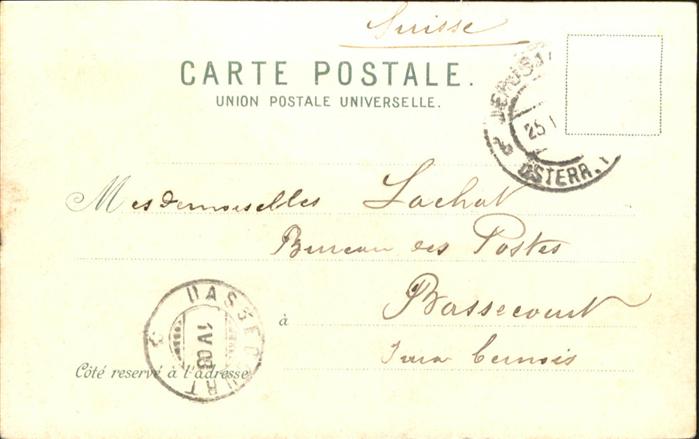 Suisse
CARTE POSTALE.
UNION POSTALE UNIVERSELLE.
JERUSA
25
ÖSTERR.
Mesdemoiselles Lachat
Bureau des Postes
à Bassecourt
Jura bernois
BASSECOURT
Côté reservé à l'adresse